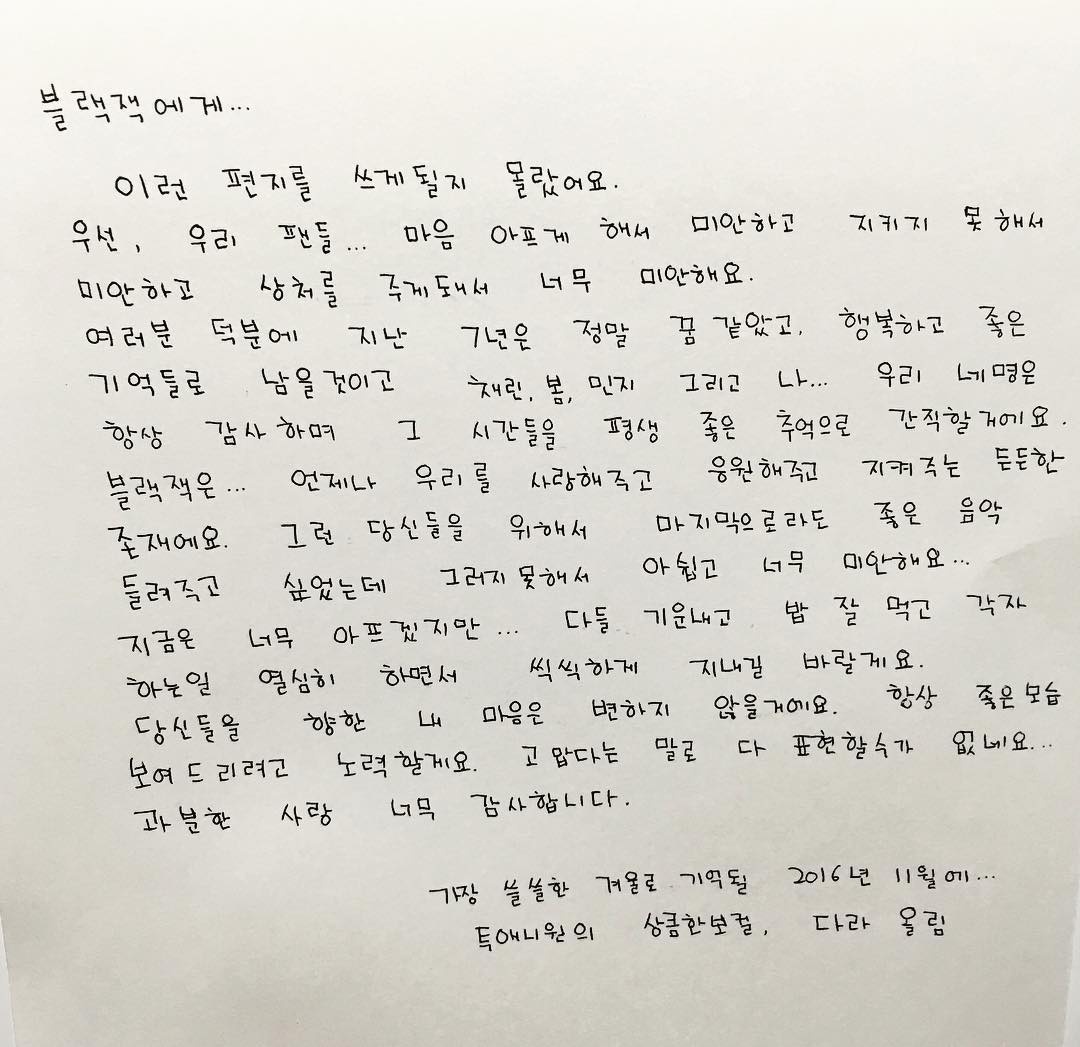 블랙잭에게...
이런 편지를 쓰게될지 몰랐어요.
우선, 우리 팬들... 마음 아프게 해서 미안하고 지키지 못해서
미안하고 상처를 주게돼서 너무 미안해요.
여러분 덕분에 지난 7년은 정말 꿈 같았고, 행복하고 좋은
기억들로 남을것이고 채린, 봄, 민지 그리고 나... 우리 네명은
항상 감사하며 그 시간들을 평생 좋은 추억으로 간직할거에요.
블랙잭은... 언제나 우리를 사랑해주고 응원해주고 지켜주는 든든한
존재에요. 그런 당신들을 위해서 마지막으로라도 좋은 음악
들려주고 싶었는데 그러지못해서 아쉽고 너무 미안해요...
지금은 너무 아프겠지만... 다들 기운내고 밥 잘 먹고 각자
하는일 열심히 하면서 씩씩하게 지내길 바랄게요.
당신들을 향한 내 마음은 변하지 않을거에요. 항상 좋은모습
보여드리려고 노력할게요. 고맙다는 말로 다 표현할수가 없네요...
과분한 사랑 너무 감사합니다.
가장 쓸쓸한 겨울로 기억될 2016년 11월에...
투애니원의 상큼한보컬, 다라 올림